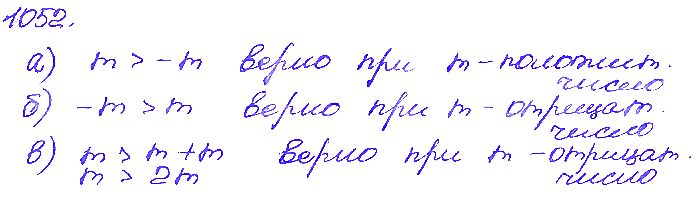 1052.
а) m > -m верно при m - положит.
число
б) -m > m верно при m - отрицат.
число
в) m > m + m верно при m - отрицат.
m > 2m число